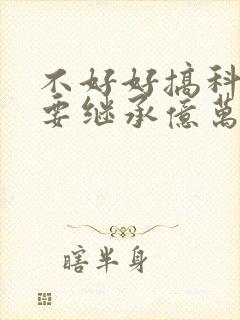 不好好搞科
要继承億萬
瞎半身